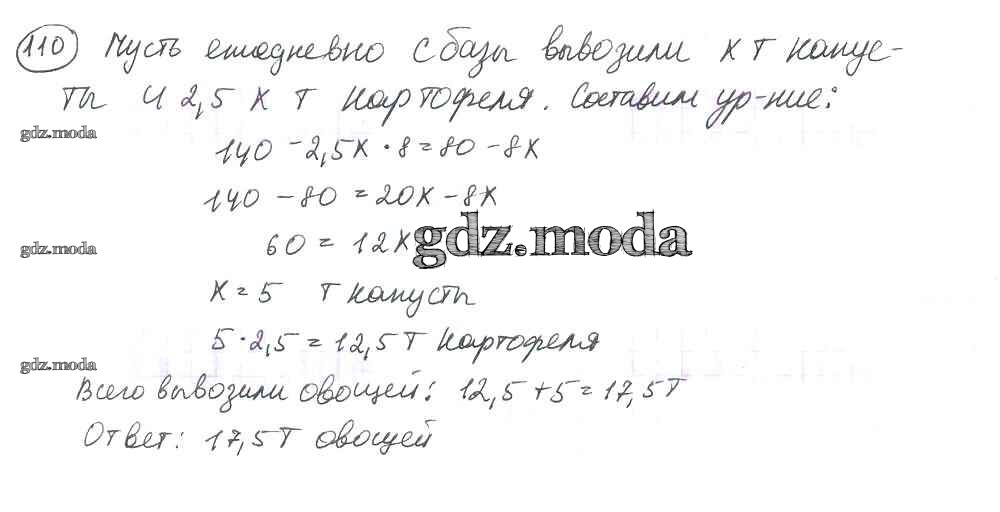 110 Пусть ежедневно с базы вывозили x т капус-
ты и 2,5 x т картофеля. Составим ур-ние:
gdz.moda
140 - 2,5x · 8 = 80 - 8x
140 - 80 = 20x - 8x
60 = 12x gdz.moda
gdz.moda
x = 5 т капусты
5 · 2,5 = 12,5 т картофеля
gdz.moda
Всего вывозили овощей: 12,5 + 5 = 17,5 т
Ответ: 17,5 т овощей